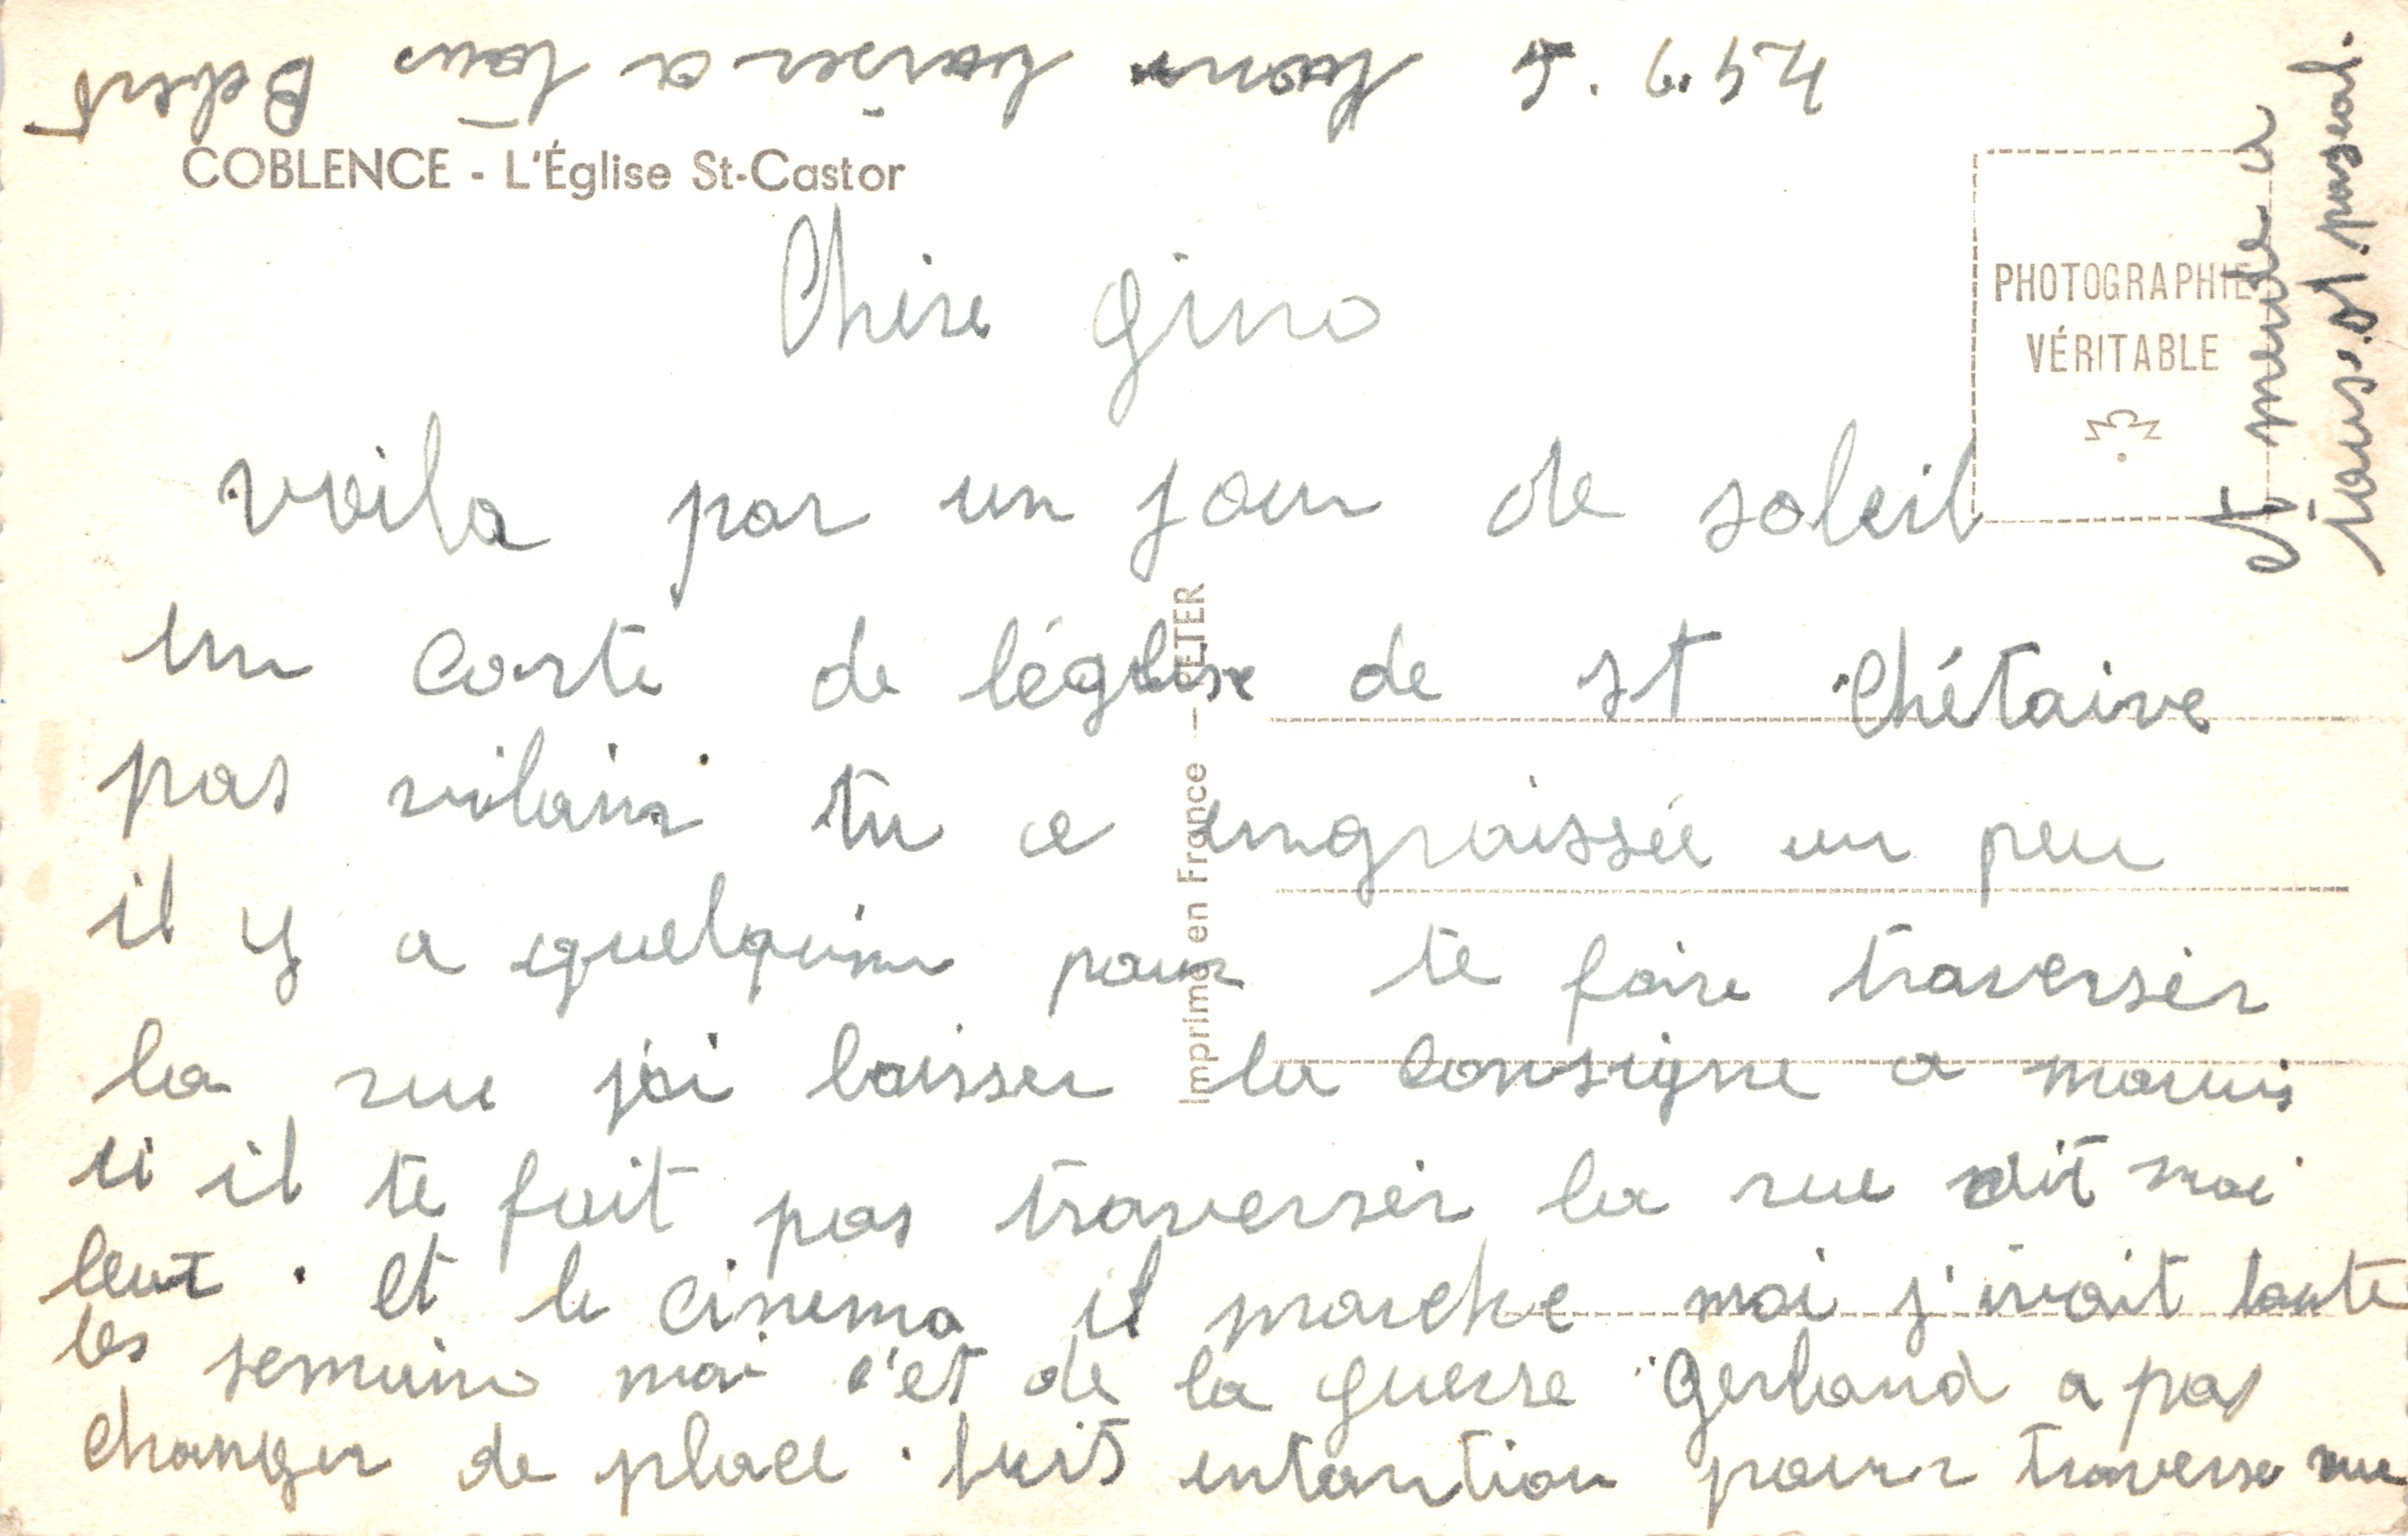 COBLENCE - L'Église St-Castor
PHOTOGRAPHIE
VÉRITABLE
Imprimé en France — JETER
Chere gino
voila par un jour de soleil
un carte de léglise de st Chétaive
pas vilain tu a engraissée un peu
il y a quelquun pour te faire traverser
la rue jai laisser la consigne a
si il te fait pas traverser la rue dit moi
leut . et le cinema il marche moi j'irait toute
les semaine moi c'et de la guerre Gerland a pas
changer de place . fuits entantion pour traverse rue
5.6.54
baiser a tous Bebert
merde a
tous et pascal.